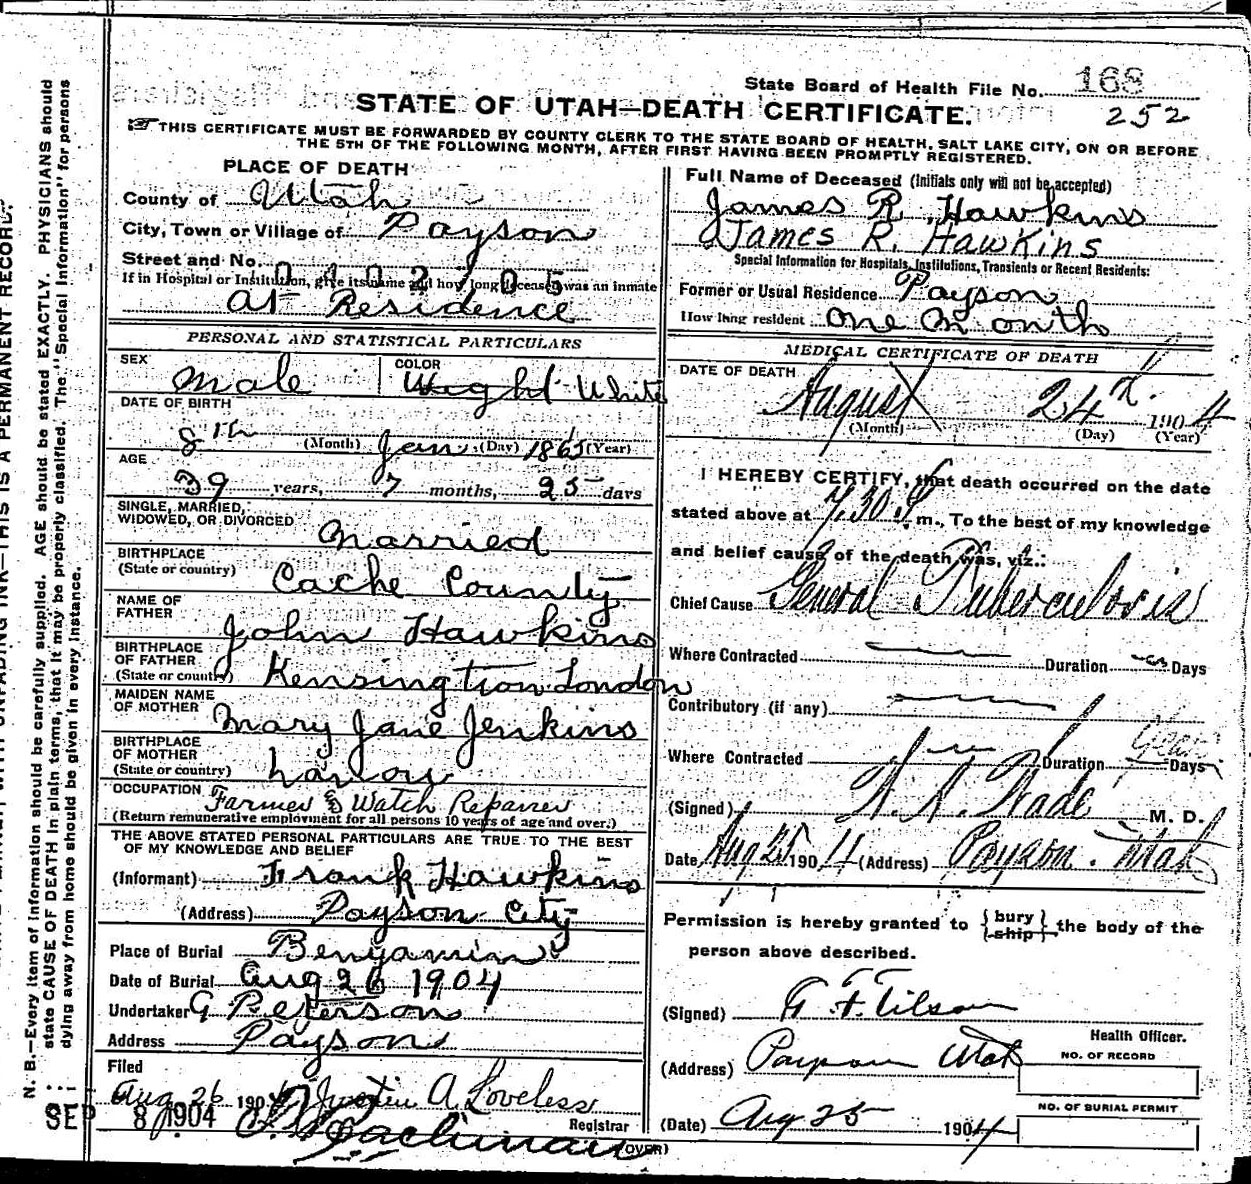 State Board of Health File No. 168
252
STATE OF UTAH—DEATH CERTIFICATE.
THIS CERTIFICATE MUST BE FORWARDED BY COUNTY CLERK TO THE STATE BOARD OF HEALTH, SALT LAKE CITY, ON OR BEFORE
THE 5TH OF THE FOLLOWING MONTH, AFTER FIRST HAVING BEEN PROMPTLY REGISTERED.
PLACE OF DEATH
County of Utah
City, Town or Village of Payson
Street and No.
If in Hospital or Institution, give its name and how long deceased was an inmate
At Residence
PERSONAL AND STATISTICAL PARTICULARS
SEX Male
COLOR Wight White
DATE OF BIRTH
8th (Month) Jan (Day) 1865 (Year)
AGE
39 years, 7 months, 25 days
SINGLE, MARRIED,
WIDOWED, OR DIVORCED Married
BIRTHPLACE
(State or country) Cache County
NAME OF
FATHER John Hawkins
BIRTHPLACE
OF FATHER
(State or country) Kensingtion London
MAIDEN NAME
OF MOTHER Mary Jane Jenkins
BIRTHPLACE
OF MOTHER
(State or country)
OCCUPATION Farmer & Watch Repairer
(Return remunerative employment for all persons 10 years of age and over.)
THE ABOVE STATED PERSONAL PARTICULARS ARE TRUE TO THE BEST
OF MY KNOWLEDGE AND BELIEF
(Informant) Frank Hawkins
(Address) Payson City
Place of Burial Benyamin
Date of Burial Aug 26 1904
Undertaker G Peterson
Address Payson
Filed
Aug. 26 190 Justin A. Loveless
Registrar
SEP 8 1904
(OVER)
Full Name of Deceased (Initials only will not be accepted)
James R. Hawkins
James R. Hawkins
Special Information for Hospitals, Institutions, Transients or Recent Residents:
Former or Usual Residence Payson
How long resident One Month
MEDICAL CERTIFICATE OF DEATH
DATE OF DEATH
August 24th 1904
(Month) (Day) (Year)
I HEREBY CERTIFY, that death occurred on the date
stated above at 7.30 P. m., To the best of my knowledge
and belief cause of the death was, viz.:
Chief Cause General Tuberculosis
Where Contracted Duration Days
Contributory (if any)
Where Contracted Duration Days
Years
(Signed) M. D.
Date Aug 25 1904 (Address) Payson. Utah
Permission is hereby granted to { bury ship } the body of the
person above described.
(Signed) G. F. Tilson
Health Officer.
(Address) Payson Utah
NO. OF RECORD
NO. OF BURIAL PERMIT
(Date) Aug 25 1904
N. B.—Every item of information should be carefully supplied. AGE should be stated EXACTLY. PHYSICIANS should
state CAUSE OF DEATH in plain terms, that it may be properly classified. The "Special Information" for persons
dying away from home should be given in every instance.
THIS IS A PERMANENT RECORD.